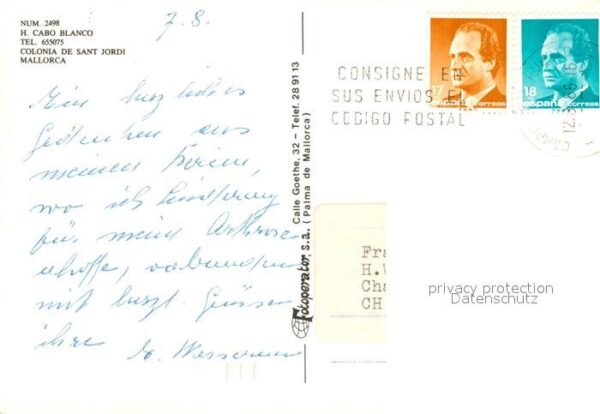 NUM. 2498
H. CABO BLANCO
TEL. 655075
COLONIA DE SANT JORDI
MALLORCA
7.8.
Ein herzliches
Gedenken aus
meinen Ferien,
wo ich Linderung
für meine Arthrose
erhoffe, verbunden
mit herzl. Grüssen
ihre
Fotoperator, s.a. Calle Goethe, 32 - Telef. 28 91 13
(Palma de Mallorca)
CONSIGNE EN
SUS ENVIOS EL
CODIGO POSTAL
17
españa correos
18
españa correos
Fra
H.V
Cha
CH
privacy protection
Datenschutz